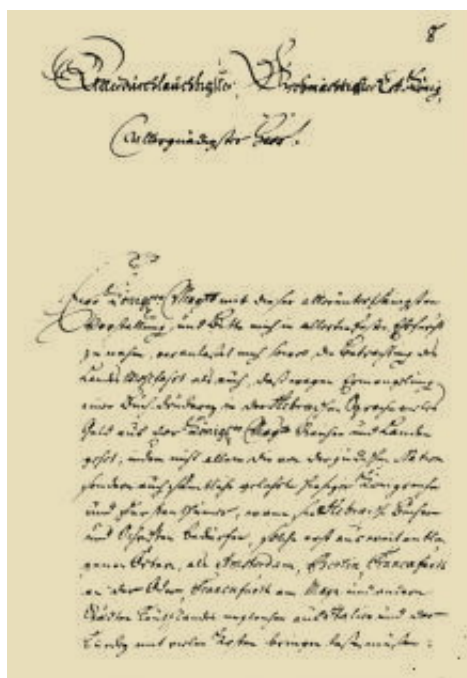 8
Allerdurchlauchtigster, Großmächtigster Erb-König,
Allergnädigster Herr!
Euer Königl. Mayt mit dieser allerunterthänigsten
Vorstellung, und Bitte mich in allertiefster Ehrfurcht
zu nahen, veranlasset mich sowohl die Betrachtung des
Landes Wohlfahrt als auch, daß wegen Ermangelung
einer Buchdruckerey in der Hebraischen Sprache vieles
Geld aus Euer Königl. Mayt Reiche und Landen
gehet, indem nicht allein die von der jüdischen Nation
sondern auch sämtliche gelehrte
und wann sie Hebraische Bücher
und Schriften bedürfen, solche erst aus weit entle-
genen Örtern, als Amsterdam, Berlin, Francfurth
an der Oder, Francfurth am Mayn und andern
Städten Teutschlandes aus Italien und der
Türckey mit vielen Kosten bringen lassen müssen: